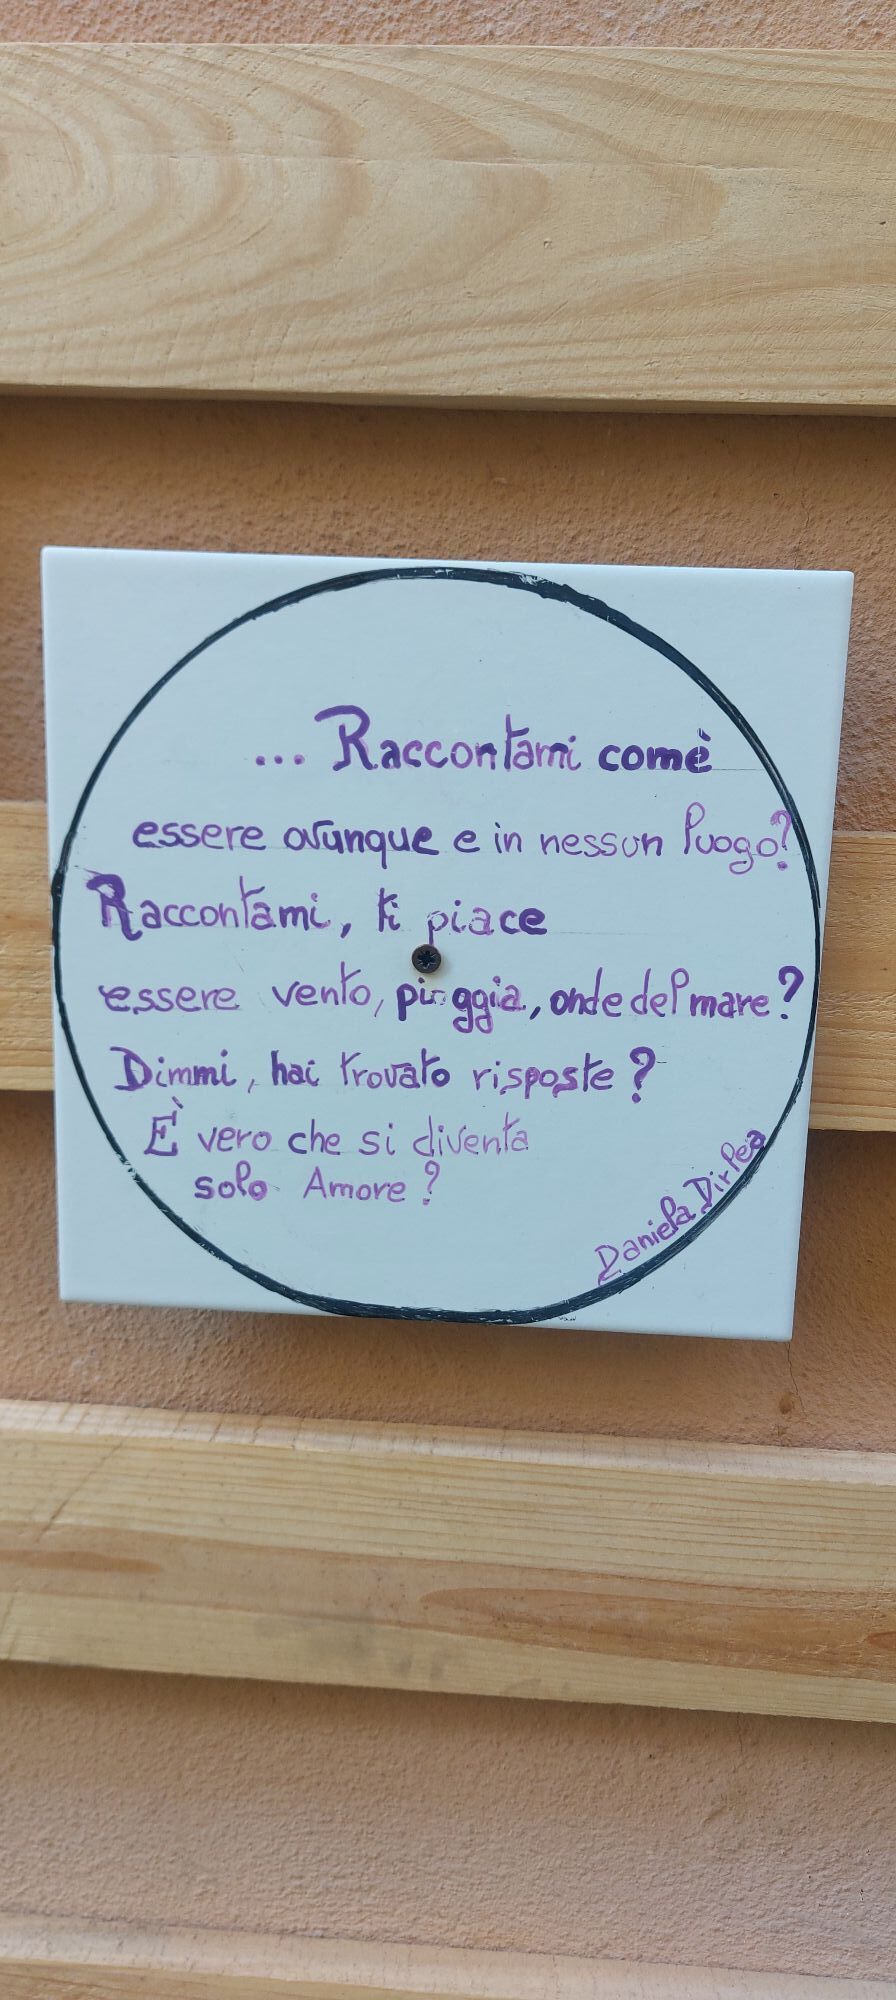 ... Raccontami comè
essere ovunque e in nessun luogo?
Raccontami, ti piace
essere vento, pioggia, onde del mare?
Dimmi, hai trovato risposte?
È vero che si diventa
solo Amore?
Daniela Dirlea